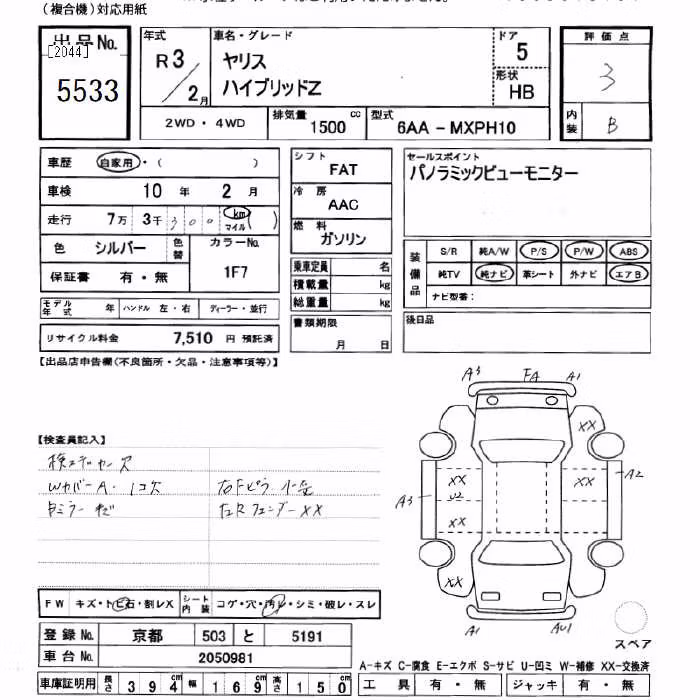 （複合機）対応用紙
出品No.
[2044]
5533
年式
R 3 / 2月
車名・グレード
ヤリス
ハイブリッドZ
ドア
5
形状
HB
評価点
3
内装
B
2WD・4WD
排気量
1500 cc
型式
6AA－MXPH10
車歴 自家用・（ ）
車検 10 年 2 月
走行 7万 3千 300 km マイル（ ）
色 シルバー 色替
カラーNo.
1F7
保証書 有・無
モデル年式 年 ハンドル 左・右 ディーラー・並行
リサイクル料金 7,510 円 預託済
シフト
FAT
冷房
AAC
燃料
ガソリン
乗車定員 名
積載量 kg
総重量 kg
書類期限
月 日
セールスポイント
パノラミックビューモニター
装備品
S/R 純A/W P/S P/W ABS
純TV 純ナビ 革シート 外ナビ エアB
ナビ型番：
後日品
【出品店申告欄（不良箇所・欠品・注意事項等）】
【検査員記入】
WカバーA・1コ欠
右Fピラー小歪
左R フェンダーXX
A3 FA A1
XX
XX XX
U2
A3 A2
XX
XX
A1 AU1
スペア
FW キズ・トビ石・割レX
シート内装 コゲ・穴・汚レ・シミ・破レ・スレ
登録No. 京都 503 と 5191
車台No. 2050981
車庫証明用 長さ 394cm 幅 169cm 高さ 150cm
A－キズ C－腐食 E－エクボ S－サビ U－凹ミ W－補修 XX－交換済
工具 有・無 ジャッキ 有・無